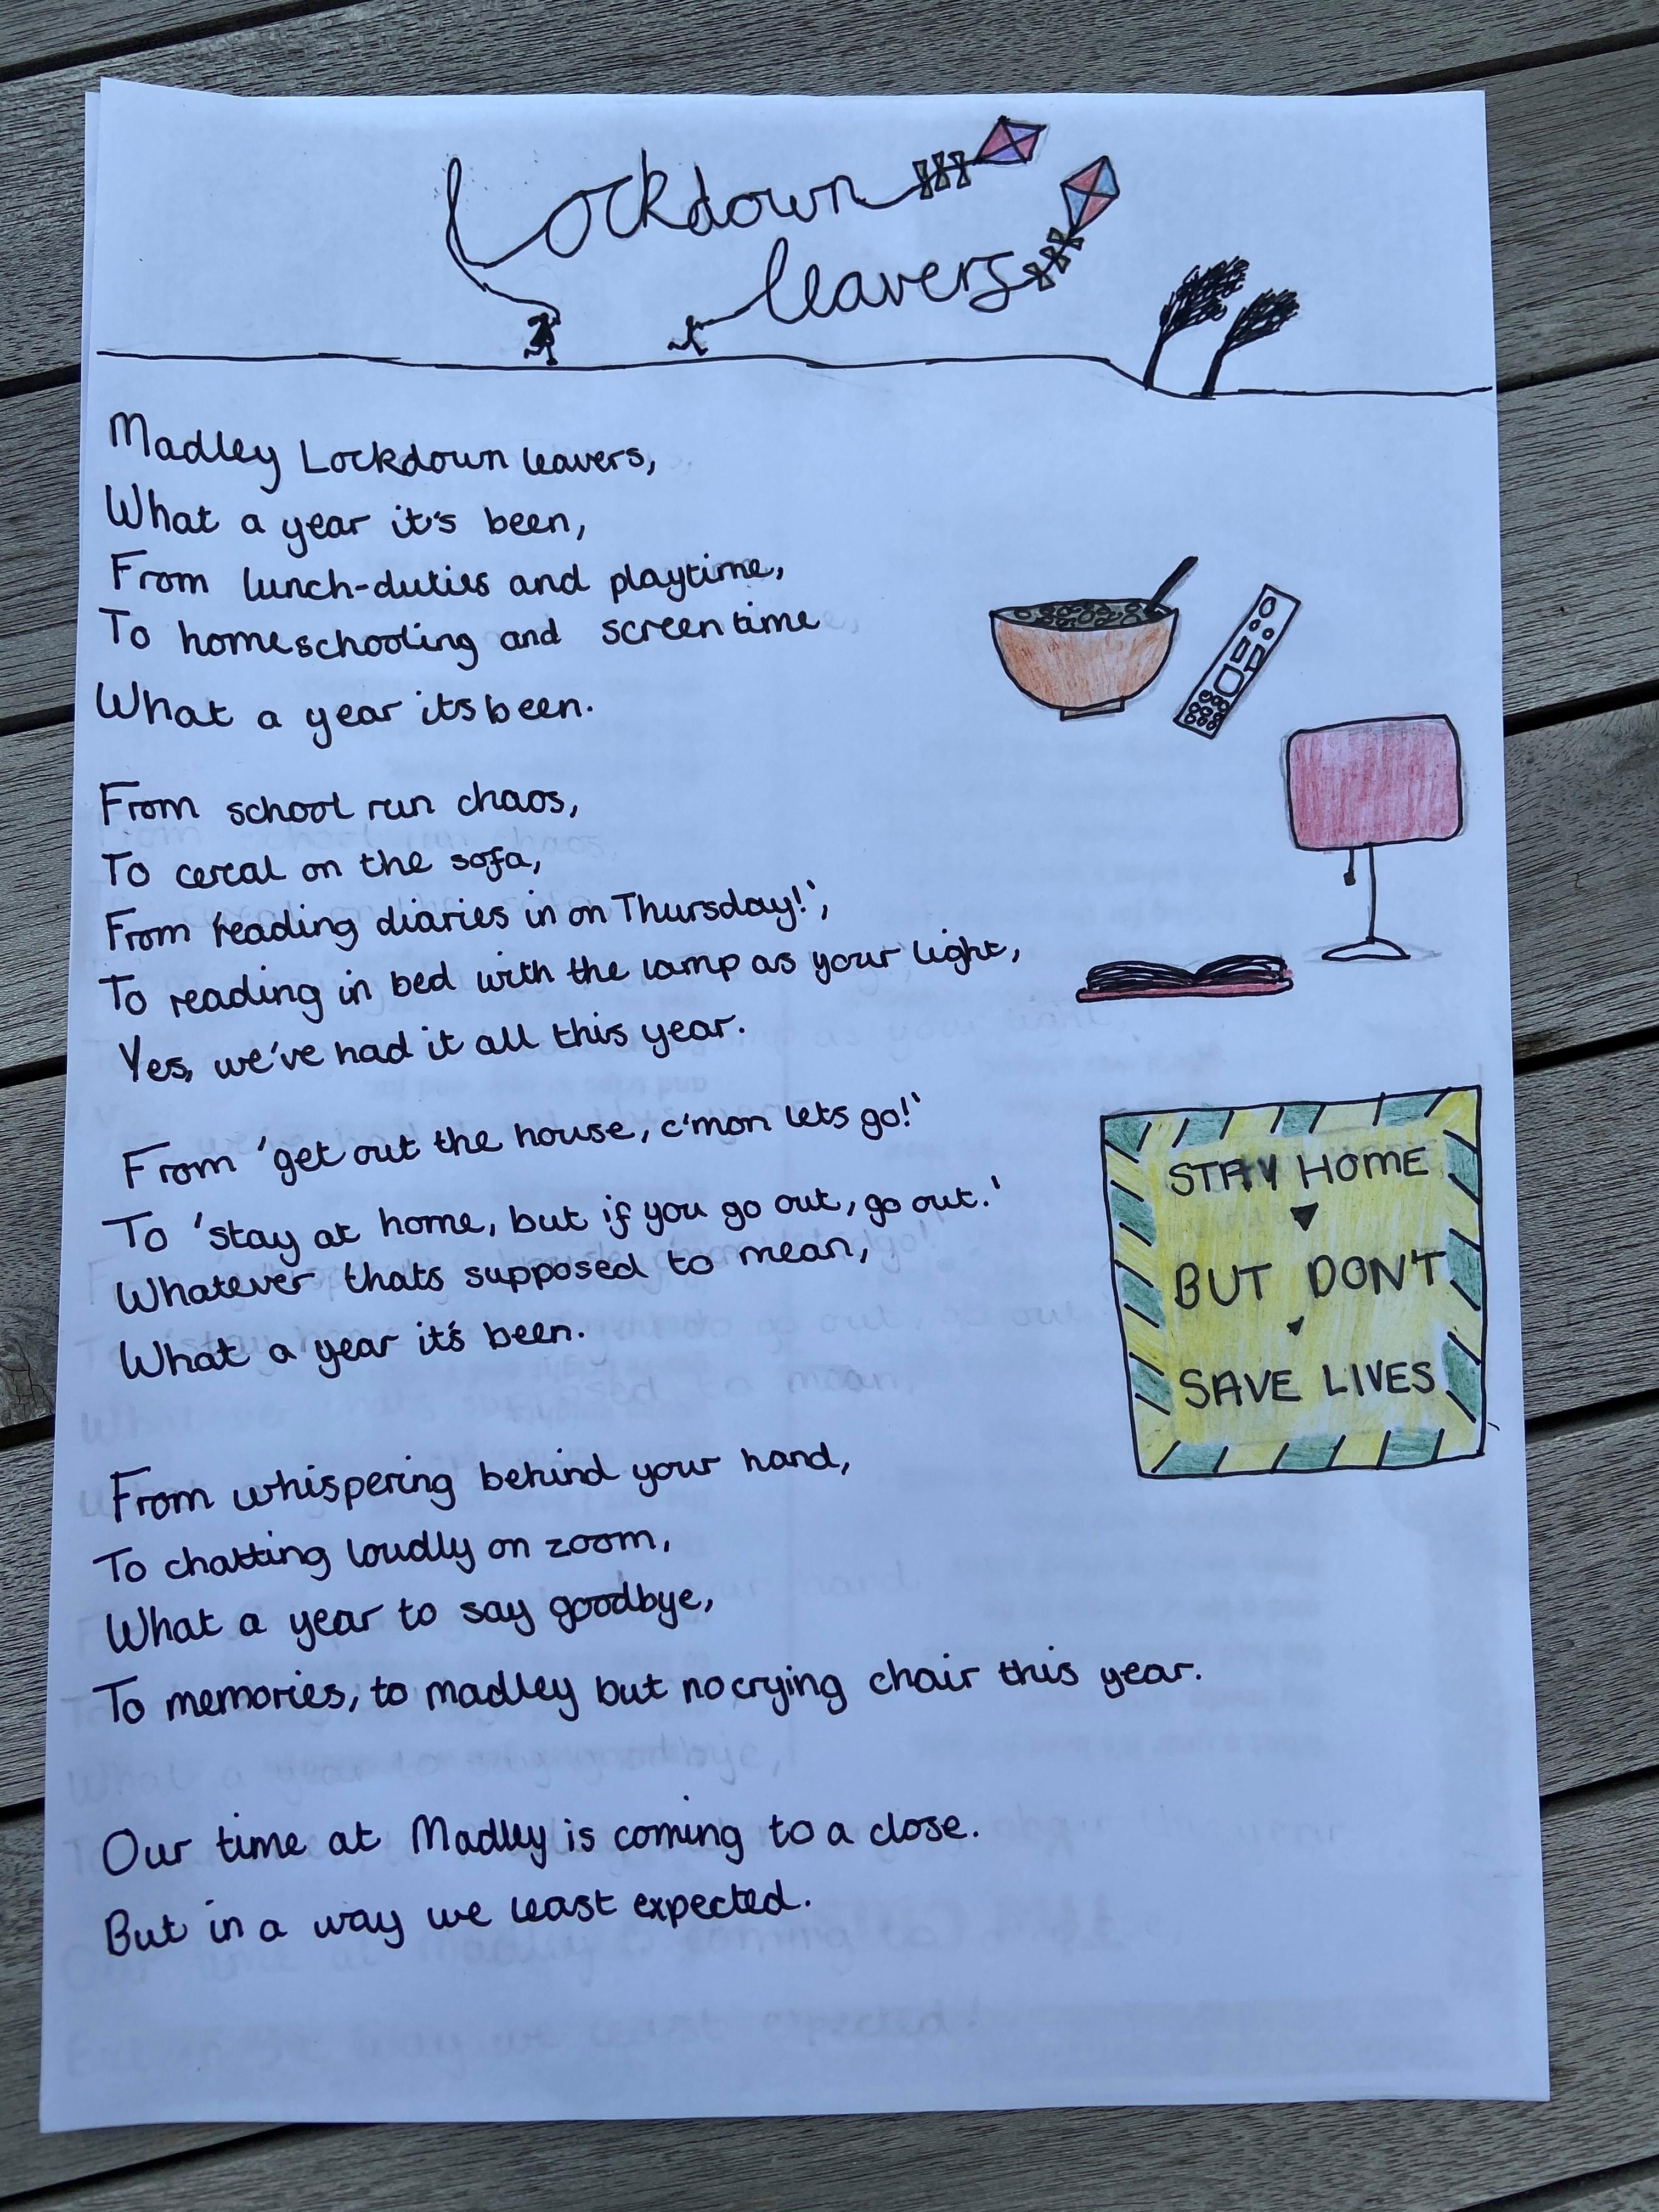 Lockdown
leavers
Madley Lockdown leavers,
What a year it's been,
From lunch-duties and playtime,
To homeschooling and screen time
What a year its been.
From school run chaos,
To cereal on the sofa,
From reading diaries in on Thursday!',
To reading in bed with the lamp as your light,
Yes, we've had it all this year.
From 'get out the house, c'mon lets go!'
To 'stay at home, but if you go out, go out.'
Whatever thats supposed to mean,
What a year it's been.
STAY HOME
BUT DON'T
SAVE LIVES
From whispering behind your hand,
To chatting loudly on zoom,
What a year to say goodbye,
To memories, to madley but no crying chair this year.
Our time at Madley is coming to a close.
But in a way we least expected.